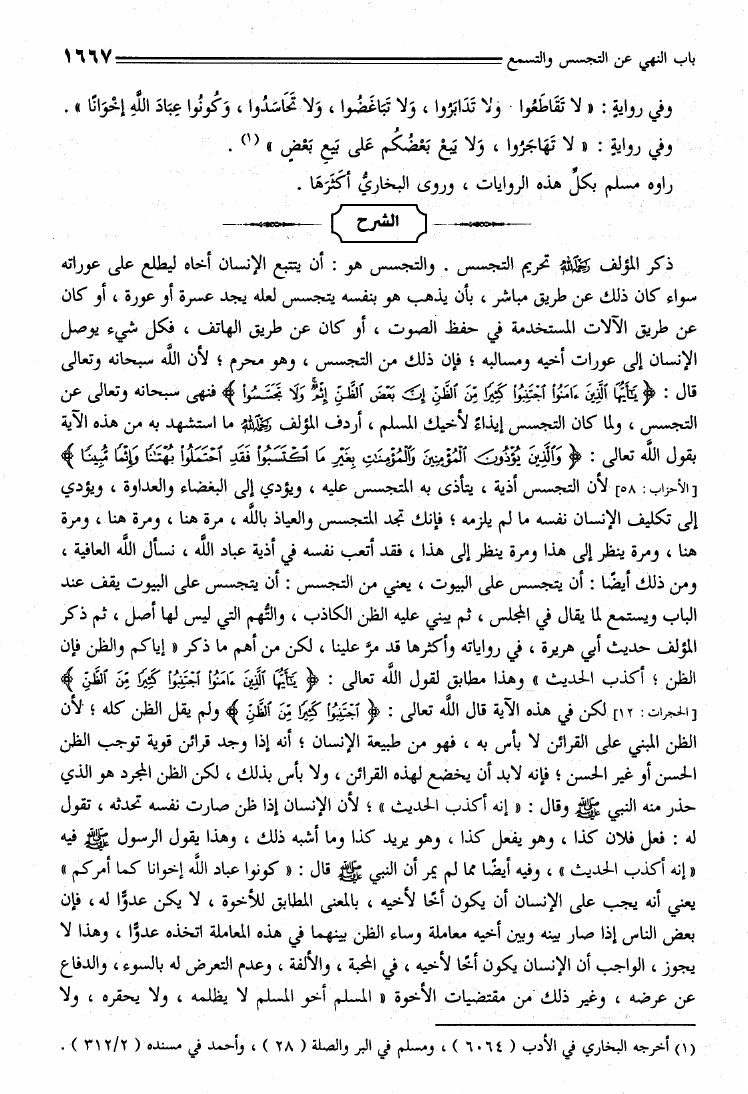 باب النهي عن التجسس والتسمع ١٦٦٧
وفي روايةٍ : « لا تَقَاطَعُوا ، ولا تَدَابَرُوا ، وَلا تَبَاغَضُوا ، وَلا تَحَاسَدُوا ، وَكُونُوا عِبَادَ اللَّهِ إخْوَانًا » .
وفي رواية : « لا تَهَاجَرُوا ، وَلا يَبِعْ بَعْضُكُم عَلى بَيعِ بَعْضٍ » (١) .
راوه مسلم بكلِّ هذه الروايات ، وروى البخاريُّ أكثَرَهَا .
الشرح
ذكر المؤلف رحمه الله تحريم التجسس . والتجسس هو : أن يتتبع الإنسان أخاه ليطلع على عوراته
سواء كان ذلك عن طريق مباشر ، بأن يذهب هو بنفسه يتجسس لعله يجد عسرة أو عورة ، أو كان
عن طريق الآلات المستخدمة في حفظ الصوت ، أو كان عن طريق الهاتف ، فكل شيء يوصل
الإنسان إلى عورات أخيه ومسالبه ؛ فإن ذلك من التجسس ، وهو محرم ؛ لأن اللَّه سبحانه وتعالى
قال : ﴿ يَٰٓأَيُّهَا ٱلَّذِينَ ءَامَنُوا۟ ٱجْتَنِبُوا۟ كَثِيرًا مِّنَ ٱلظَّنِّ إِنَّ بَعْضَ ٱلظَّنِّ إِثْمٌ ۖ وَلَا تَجَسَّسُوا۟ ﴾ فنهى سبحانه وتعالى عن
التجسس ، ولما كان التجسس إيذاءً لأخيك المسلم ، أردف المؤلف رحمه الله ما استشهد به من هذه الآية
بقول اللَّه تعالى : ﴿ وَٱلَّذِينَ يُؤْذُونَ ٱلْمُؤْمِنِينَ وَٱلْمُؤْمِنَٰتِ بِغَيْرِ مَا ٱكْتَسَبُوا۟ فَقَدِ ٱحْتَمَلُوا۟ بُهْتَٰنًا وَإِثْمًا مُّبِينًا ﴾
[الأحزاب : ٥٨] لأن التجسس أذية ، يتأذى به المتجسس عليه ، ويؤدي إلى البغضاء والعداوة ، ويؤدي
إلى تكليف الإنسان نفسه ما لم يلزمه ؛ فإنك تجد المتجسس والعياذ باللَّه ، مرة هنا ، ومرة هنا ، ومرة
هنا ، ومرة ينظر إلى هذا ومرة ينظر إلى هذا ، فقد أتعب نفسه في أذية عباد اللَّه ، نسأل اللَّه العافية ،
ومن ذلك أيضًا : أن يتجسس على البيوت ، يعني من التجسس : أن يتجسس على البيوت يقف عند
الباب ويستمع لما يقال في المجلس ، ثم يبني عليه الظن الكاذب ، والتُّهم التي ليس لها أصل ، ثم ذكر
المؤلف حديث أبي هريرة ، في رواياته وأكثرها قد مرَّ علينا ، لكن من أهم ما ذكر « إياكم والظن فإن
الظن ؛ أكذب الحديث » وهذا مطابق لقول اللَّه تعالى : ﴿ يَٰٓأَيُّهَا ٱلَّذِينَ ءَامَنُوا۟ ٱجْتَنِبُوا۟ كَثِيرًا مِّنَ ٱلظَّنِّ ﴾
[الحجرات : ١٢] لكن في هذه الآية قال اللَّه تعالى : ﴿ ٱجْتَنِبُوا۟ كَثِيرًا مِّنَ ٱلظَّنِّ ﴾ ولم يقل الظن كله ؛ لأن
الظن المبني على القرائن لا بأس به ، فهو من طبيعة الإنسان ؛ أنه إذا وجد قرائن قوية توجب الظن
الحسن أو غير الحسن ؛ فإنه لابد أن يخضع لهذه القرائن ، ولا بأس بذلك ، لكن الظن المجرد هو الذي
حذر منه النبي ﷺ وقال : « إنه أكذب الحديث » ؛ لأن الإنسان إذا ظن صارت نفسه تحدثه ، تقول
له : فعل فلان كذا ، وهو يفعل كذا ، وهو يريد كذا وما أشبه ذلك ، وهذا يقول الرسول ﷺ فيه
« إنه أكذب الحديث » ، وفيه أيضًا مما لم يمر أن النبي ﷺ قال : « كونوا عباد اللَّه إخوانا كما أمركم »
يعني أنه يجب على الإنسان أن يكون أخًا لأخيه ، بالمعنى المطابق للأخوة ، لا يكن عدوًّا له ، فإن
بعض الناس إذا صار بينه وبين أخيه معاملة وساء الظن بينهما في هذه المعاملة اتخذه عدوًّا ، وهذا لا
يجوز ، الواجب أن الإنسان يكون أخًا لأخيه ، في المحبة ، والألفة ، وعدم التعرض له بالسوء ، والدفاع
عن عرضه ، وغير ذلك من مقتضيات الأخوة « المسلم أخو المسلم لا يظلمه ، ولا يحقره ، ولا
(١) أخرجه البخاري في الأدب ( ٦٠٦٤ ) ، ومسلم في البر والصلة ( ٢٨ ) ، وأحمد في مسنده ( ٣١٢/٢ ) .